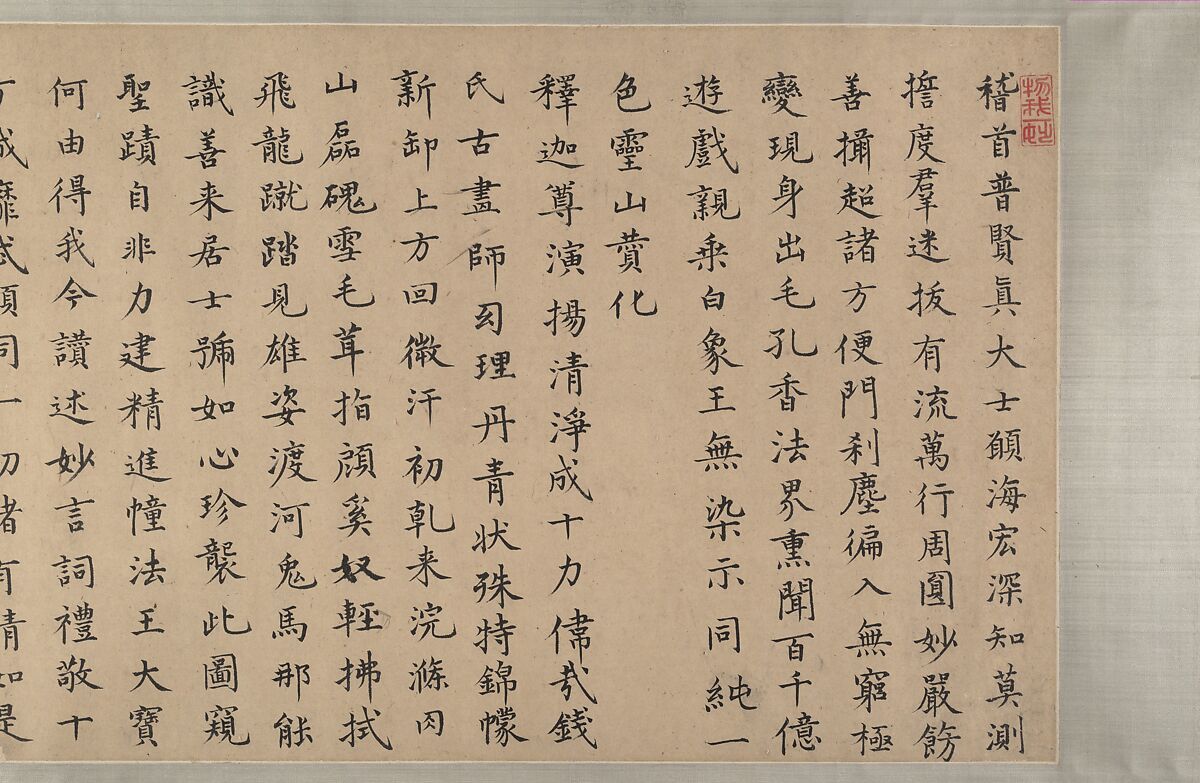 稽首普賢眞大士願海宏深知莫測
擔度羣迷拔有流萬行周圓妙嚴飭
善攝超諸方便門刹塵徧入無窮極
變現身出毛孔香法界熏聞百千億
遊戲親乗白象王無染示同純一
色靈山賛化
釋迦尊演揚清淨成十力偉哉錢
氏古畫師幻理丹青状殊特錦幪
新卸上方回微汗初乹来浣滌肉
山磊磈雪毛茸指顧奚奴輕拂拭
飛龍蹴踏見雄姿渡河兔馬那能
識善来居士號如心珍襲此圖窺
聖蹟自非力建精進幢法王大寶
何由得我今讚述妙言詞禮敬十
方咸靡忒願同一切諸有情如是